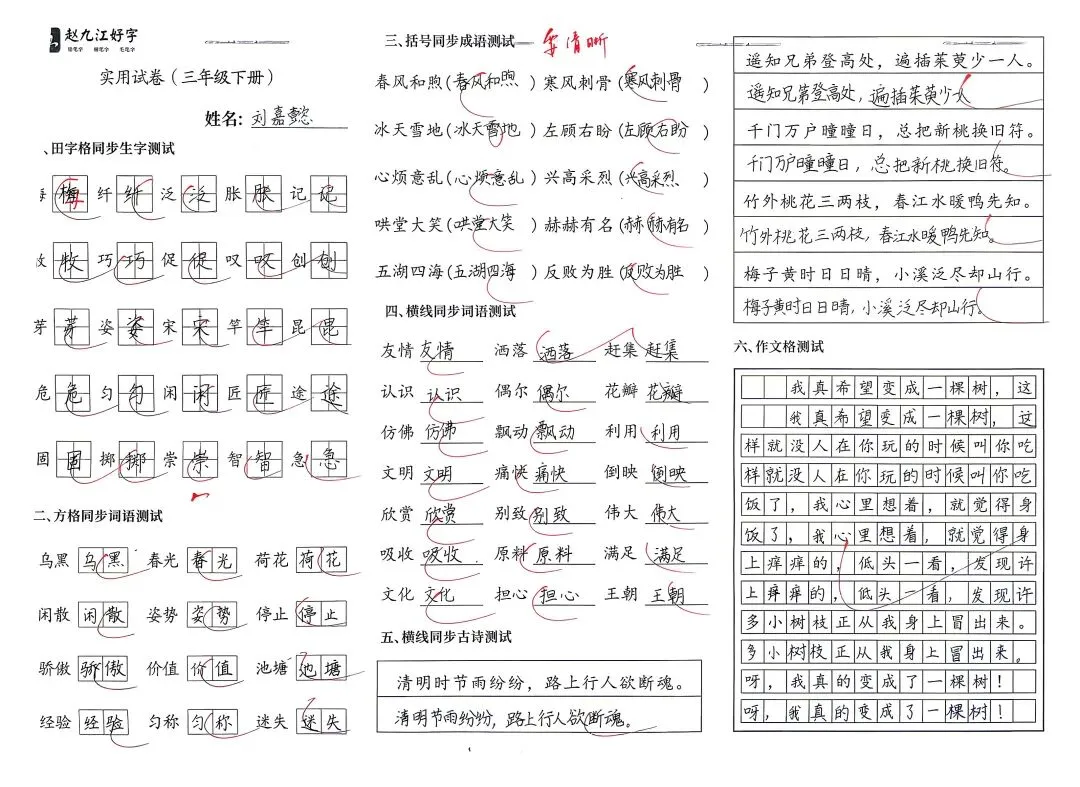 赵九江好字
铅笔字 硬笔字 毛笔字
实用试卷（三年级下册）
姓名：刘嘉懿
、田字格同步生字测试
梅 纤 纤 泛 泛 胀 胀 记 记
牧 巧 巧 促 促 叹 叹 创 创
芽 芽 姿 姿 宋 宋 竿 竿 昆 昆
危 危 匀 匀 闲 闲 匠 匠 途 途
固 固 掷 掷 崇 崇 智 智 急 急
二、方格同步词语测试
乌黑 乌黑 春光 春光 荷花 荷花
闲散 闲散 姿势 姿势 停止 停止
骄傲 骄傲 价值 价值 池塘 池塘
经验 经验 匀称 匀称 迷失 迷失
三、括号同步成语测试 要清晰
春风和煦（春风和煦）寒风刺骨（寒风刺骨）
冰天雪地（冰天雪地）左顾右盼（左顾右盼）
心烦意乱（心烦意乱）兴高采烈（兴高采烈）
哄堂大笑（哄堂大笑）赫赫有名（赫赫有名）
五湖四海（五湖四海）反败为胜（反败为胜）
四、横线同步词语测试
友情 友情 洒落 洒落 赶集 赶集
认识 认识 偶尔 偶尔 花瓣 花瓣
仿佛 仿佛 飘动 飘动 利用 利用
文明 文明 痛快 痛快 倒映 倒映
欣赏 欣赏 别致 别致 伟大 伟大
吸收 吸收 原料 原料 满足 满足
文化 文化 担心 担心 王朝 王朝
五、横线同步古诗测试
清明时节雨纷纷，路上行人欲断魂。
清明节雨纷纷，路上行人欲断魂。
遥知兄弟登高处，遍插茱萸少一人。
遥知兄弟登高处，遍插茱萸少人
千门万户曈曈日，总把新桃换旧符。
千门万户曈曈日，总把新桃换旧符。
竹外桃花三两枝，春江水暖鸭先知。
竹外桃花三两枝，春江水暖鸭先知。
梅子黄时日日晴，小溪泛尽却山行。
梅子黄时日日晴，小溪泛尽却山行。
六、作文格测试
我真希望变成一棵树，这
我真希望变成一棵树，这
样就没人在你玩的时候叫你吃
样就没人在你玩的时候叫你吃
饭了，我心里想着，就觉得身
饭了，我心里想着，就觉得身
上痒痒的，低头一看，发现许
上痒痒的，低头一看，发现许
多小树枝正从我身上冒出来。
多小树枝正从我身上冒出来。
呀，我真的变成了一棵树！
呀，我真的变成了一棵树！